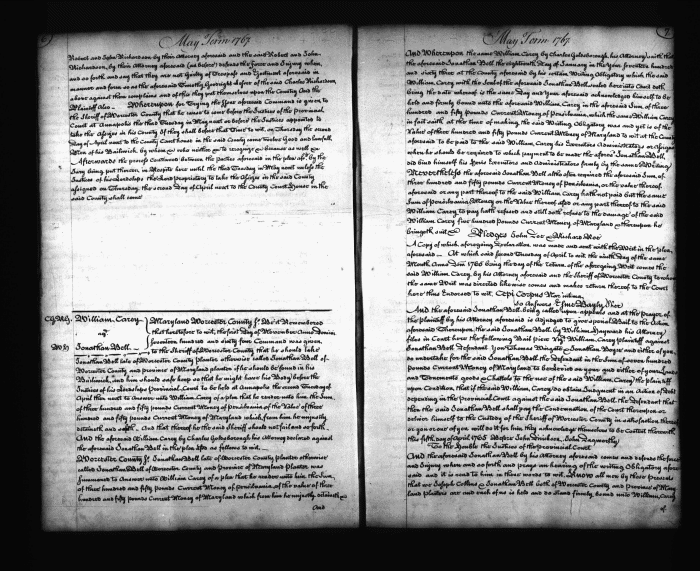 May Term 1767.
Robert and John Richardson, by their Attorney aforesaid and the said Robert and John
Richardson, by their Attorney aforesaid (as before) defends the force and Injury when
and so forth and say that they are not Guilty of Trespass and Ejectment aforesaid in
manner and form as the aforesaid Timothy as the said Charles Richardson
above against them complains and of this they put themselves upon the County And the
Plaintiff also — Whereupon for Trying the Issue aforesaid Command is given to
the Sheriff of Worcester County that he cause to come before the Justices of the Provincial
Court at Annapolis the third Tuesday in May next or before the Justices appointed to
take the Assizes in his County if they shall before that time to wit, on Thursday the second
day of April next to the County Court house in the said County come twelve Good and lawfull
Men of his Bailiwick, by whom &c who neither &c to recognize &c because as well &c
Afterwards the process continued between the Parties aforesaid in the plea afd. by the
Jury being put therein, in Respite here until the third Tuesday in May next unless the
Justices of his Lordships the Lord Proprietary to take the Assizes in the said County
assigned on Thursday the second day of April next to the County Court House in the
said County shall come
William Carey
agt
Jonathan Bell
Maryland Worcester County Sc. Be it Remembered
that heretofore to wit, the first day of November Anno Domini
seventeen hundred and sixty four Command was given
to the Sheriff of Worcester County that he should take
Jonathan Bell late of Worcester County planter otherwise called Jonathan Bell of
Worcester County and province of Maryland planter if he should be found in his
Bailiwick, and him should safe keep so that he might have his Body before the
Justices of his lordships Provincial Court to be held at Annapolis the second Tuesday of
April then next to Answer unto William Carey of a plea that he render unto him the Sum
of three hundred and fifty pounds Current Money of pensilvania of the Value of three
hundred and fifty pounds Current Money of Maryland which from him he unjustly
detaineth and saith And that thereof he the said Sheriff should not fail and so forth.
And the aforesaid William Carey by Charles Goldsborough his Attorney declared against
the aforesaid Jonathan Bell in the plea afsd as follows to wit,
Worcester County Sc. Jonathan Bell late of Worcester County Planter otherwise
called Jonathan Bell of Worcester County and Province of Maryland Planter was
summoned to Answer unto William Carey of a plea that he render unto him the Sum
of three hundred and fifty pounds Current Money of pensilvania, of the value of three
hundred and fifty pounds Current Money of Maryland which from him he unjustly detaineth &c
And
May Term 1767.
And Whereupon the same William Carey by Charles Goldsborough, his Attorney saith that
the aforesaid Jonathan Bell the eighteenth day of January in the Year seventeen hundred
and sixty three at the County aforesaid by his certain Writing Obligatory which the said
William Carey with the Seal of the aforesaid Jonathan Bell sealed here into Court doth
bring the date whereof is the same day and year aforesaid acknowledged himself to be
held and firmly bound unto the aforesaid William Carey in the aforesaid Sum of three
hundred and fifty pounds Current Money of Pensilvania, which the same William Carey
in fact saith at the time of making the said Writing Obligatory was and yet is of the
Value of three hundred and fifty pounds Current Money of Maryland to wit at the County
aforesaid to be paid to the said William Carey his Executors Administrators or Assigns
when he should be required to which payment to be made the aforesd Jonathan Bell,
did bind himself his Heirs Executors and Administrators firmly by the same
Nevertheless the aforesaid Jonathan Bell altho often required the aforesaid Sum of
three hundred and fifty pounds Current Money of Pensilvania, or the value thereof
aforesaid or any part thereof to the said William Carey hath not paid but the same
Sum of Pensilvania Money or the Value thereof afsd or any part thereof to the said
William Carey to pay hath refused and still doth refuse to the damage of the said
William Carey five hundred pounds Current Money of Maryland & thereupon he
bringeth suit &c Pledges John Doe & Richard Roe
A Copy of which aforegoing Declaration was made and sent with the Writ in the plea
aforesaid — At which said second Tuesday of April to wit the ninth day of the same
Month Anno Dom 1765 being the day of the return of the aforegoing Writ comes the
said William Carey, by his Attorney aforesaid and the Sheriff of Worcester County to whom
the same Writ was directed likewise comes and makes return thereof to the Court
here thus Endorsed to wit, Cepi Corpus
So Answers Esme Bayly Shff
And the aforesaid Jonathan Bell being called upon appears and at the prayer of
the Plaintiff by his Attorney aforesaid is adjudged to give special Bail to the Action
aforesaid Thereupon the said Jonathan Bell by William Hayward his Attorney
files in Court here the following Bail piece Vizt. William Carey plaintiff against
Jonathan Bell Defendant You Jonathan Bogue and either of you
do undertake for the said Jonathan Bell the Defendant in the sum of seven hundred
pounds Current Money of Maryland to be levied on your and either of your Lands
and Tenements goods & Chattels to the use of the said William Carey the plaintiff
upon Condition, that if the said William Carey do obtain Judgment in an Action of debt
depending in the Provincial Court against the said Jonathan Bell the Defendant that
then the said Jonathan Bell shall pay the Condemnation of the Court thereupon or
deliver himself to the Custody of the Sheriff of Worcester County in satisfaction thereof
or you or one of you will do it for him, they acknowledge themselves to be content therewith
this fifth day of April 1765 Before John Dagworthy
To the Honble the Justices of the provincial Court
And the aforesaid Jonathan Bell by his Attorney aforesaid comes and defends the force
and Injury when and so forth and prays an hearing of the writing Obligatory afore
said and it is read to him in these words to wit, Know all men by these presents
that we Joseph Collins & Jonathan Bell both of Worcester County and Province of Mary
land planters are and each of us is held and do stand firmly bound unto William Carey
of